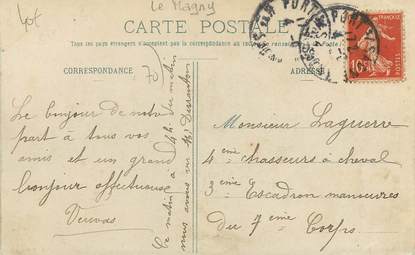 Lot
Le Magny
CARTE POSTALE
Tous les pays étrangers n'acceptent pas la correspondance au recto
CORRESPONDANCE
70
ADRESSE
10
Le bonjour de notre
part à tous vos
amis et un grand
bonjour affectueuse
Ce matin à 4h du matin
Monsieur Laguerre
4ème chasseurs à cheval
3ème Escadron manœuvres
du 7ème Corps